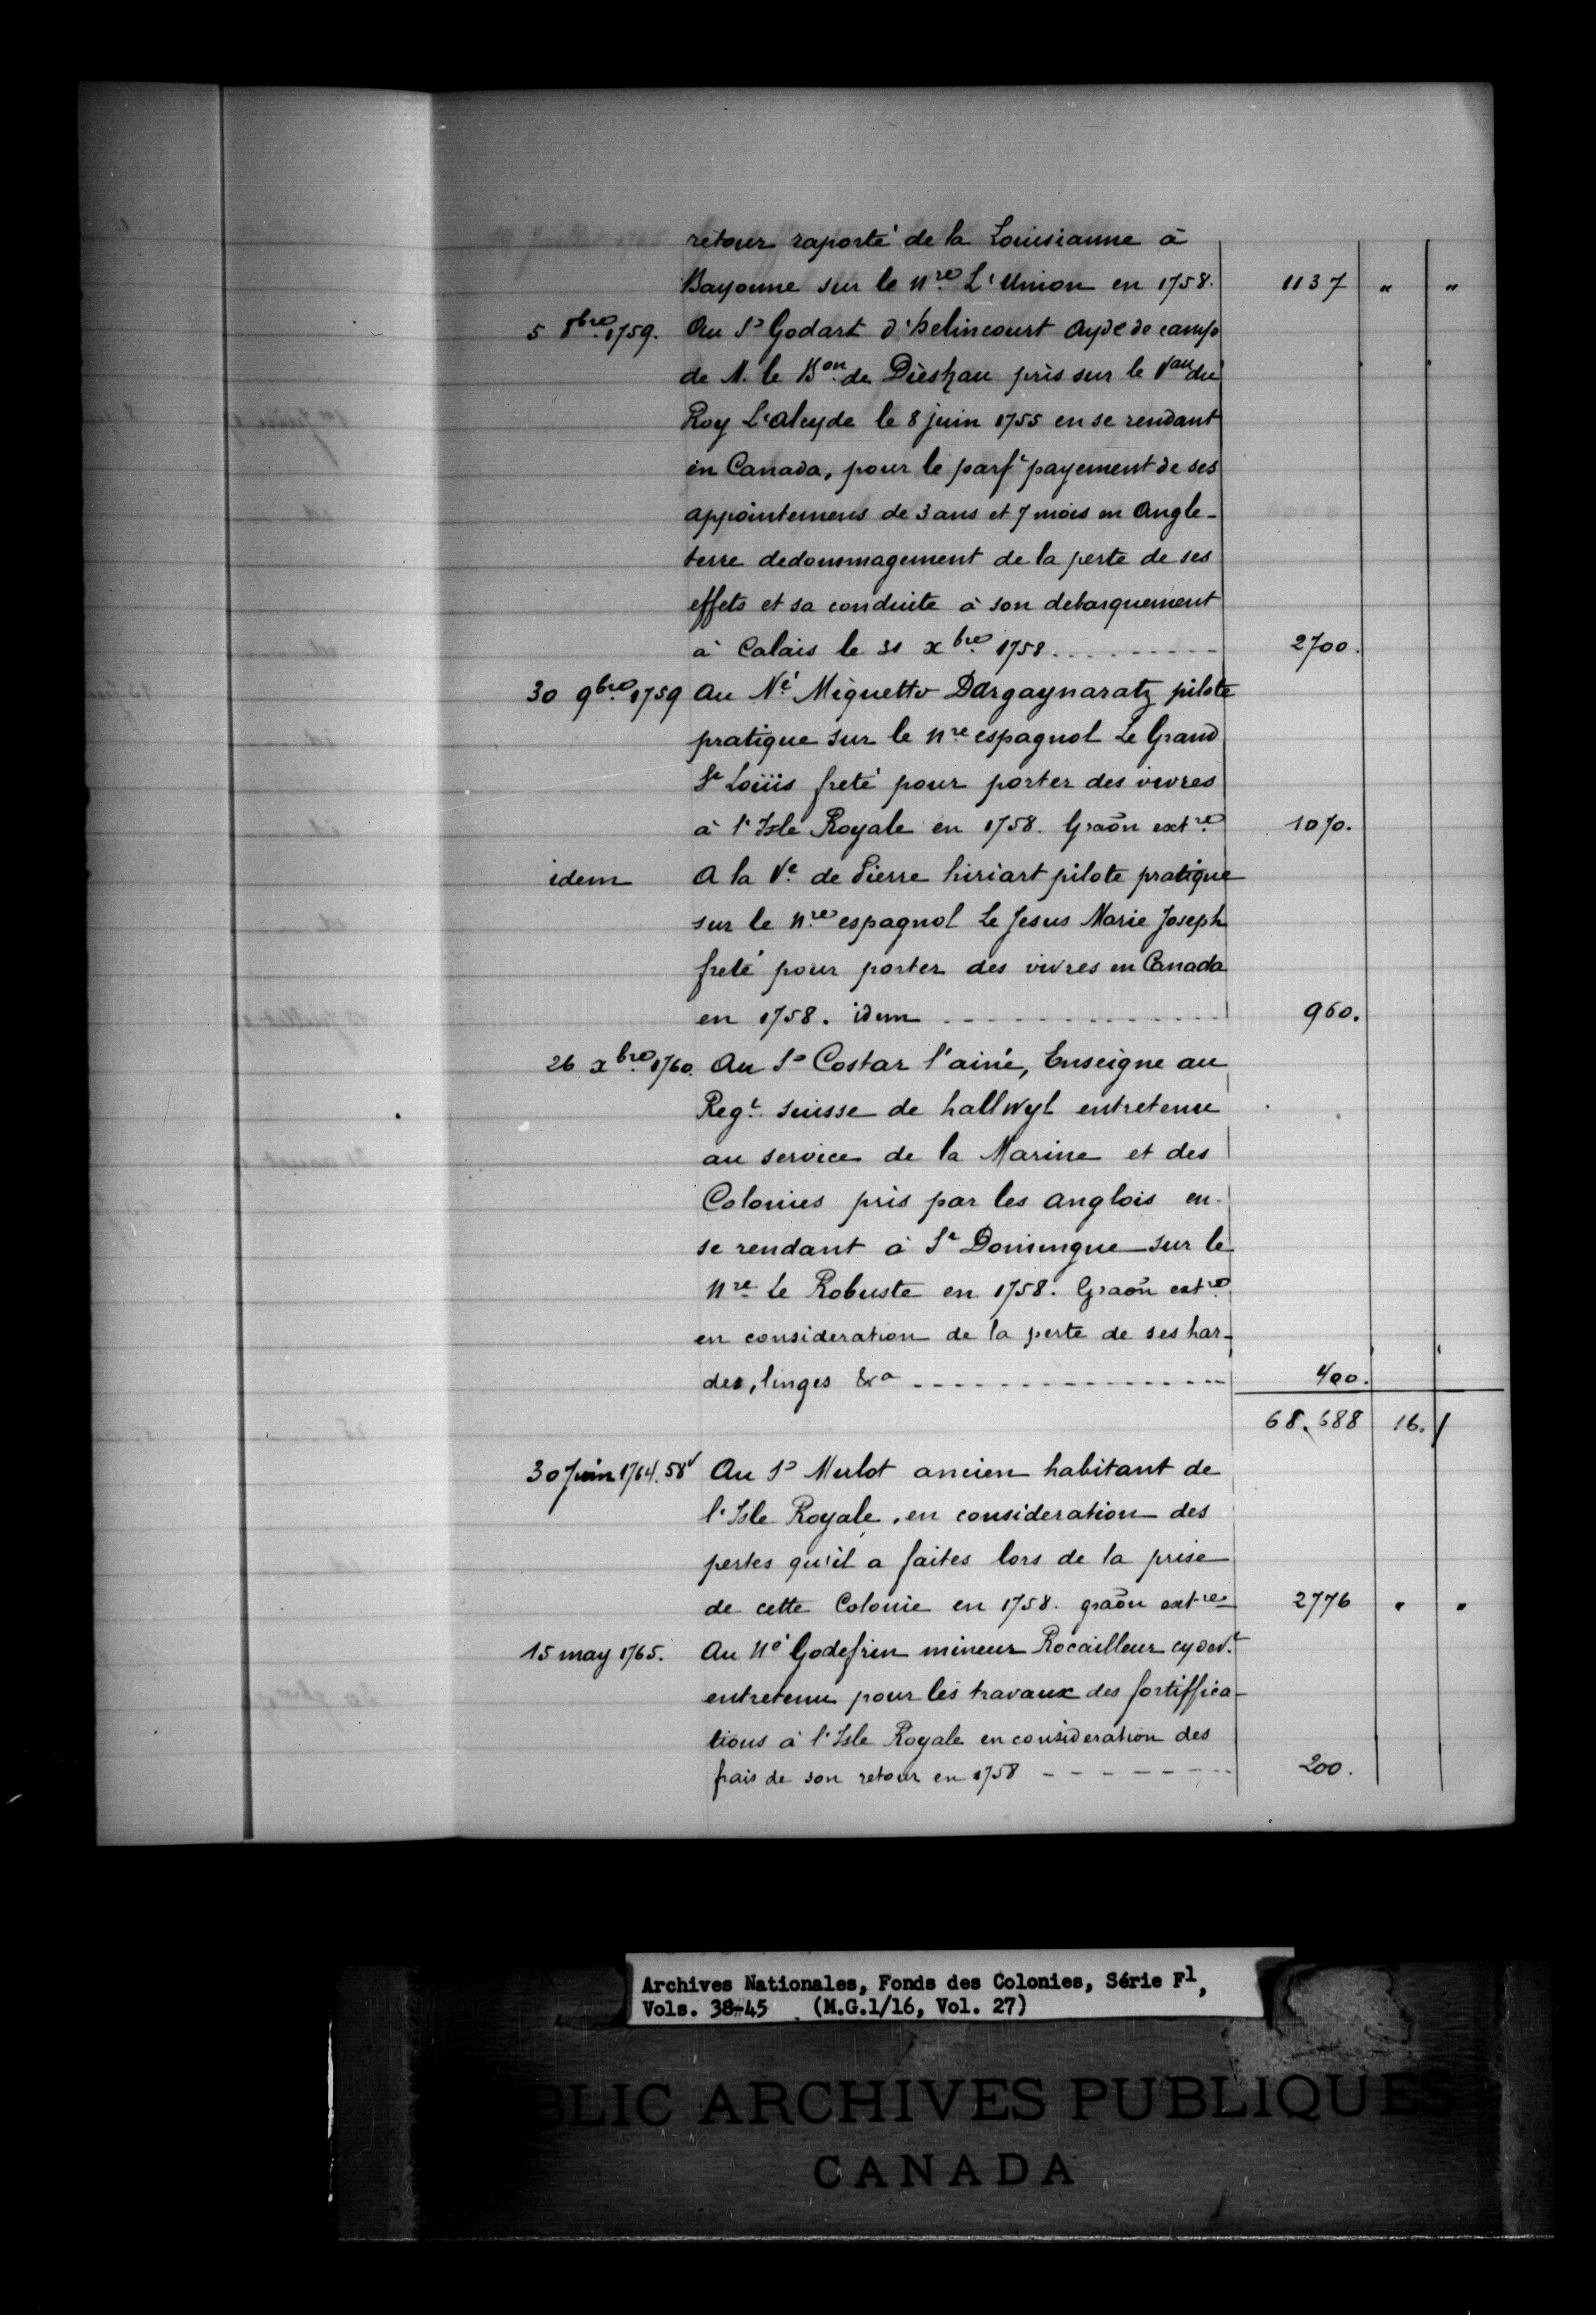 retour raporté de la Louisianne à
Bayonne sur le nre L'Union en 1758. 1137 " "
5 8bre 1759. Au Sr Godart d'helincourt Ayde de camp
de M. le Bon de Dieskau pris sur le Vau du
Roy L'Alcyde le 8 juin 1755 en se rendant
en Canada, pour le parft payement de ses
appointemens de 3 ans et 7 mois en Angle-
terre dedommagement de la perte de ses
effets et sa conduite à son debarquement
à Calais le 31 xbre 1758......... 2700.
30 9bre 1759 Au Né Miguetto Dargaynaratz pilote
pratique sur le nre espagnol Le Grand
St Loüis freté pour porter des vivres
à l'Isle Royale en 1758. Graõn extre 1070.
idem A la Ve de Pierre hiriart pilote pratique
sur le nre espagnol Le Jesus Marie Joseph
freté pour porter des vivres en Canada
en 1758. idem ............. 960.
26 xbre 1760. Au Sr Costar l'ainé, Enseigne au
Regt suisse de hallwyl entretenu
au service de la Marine et des
Colonies pris par les anglois en
se rendant à St Domingue sur le
nre Le Robuste en 1758. Graõn extre
en consideration de la perte de ses har-
des, linges &a ............... 400.
68.688 16. /
30 Juin 1764. 58 Au Sr Mulot ancien habitant de
l'Isle Royale, en consideration des
pertes qu'il a faites lors de la prise
de cette Colonie en 1758. graõn extre 2776 " "
15 may 1765. Au Né Godefrin mineur Rocailleur cydevt
entretenu pour les travaux des fortiffica-
tions à l'Isle Royale en consideration des
frais de son retour en 1758 -------- 200.
Archives Nationales, Fonds des Colonies, Série F1,
Vols. 38-45 (M.G.1/16, Vol. 27)
BLIC ARCHIVES PUBLIQUES
CANADA